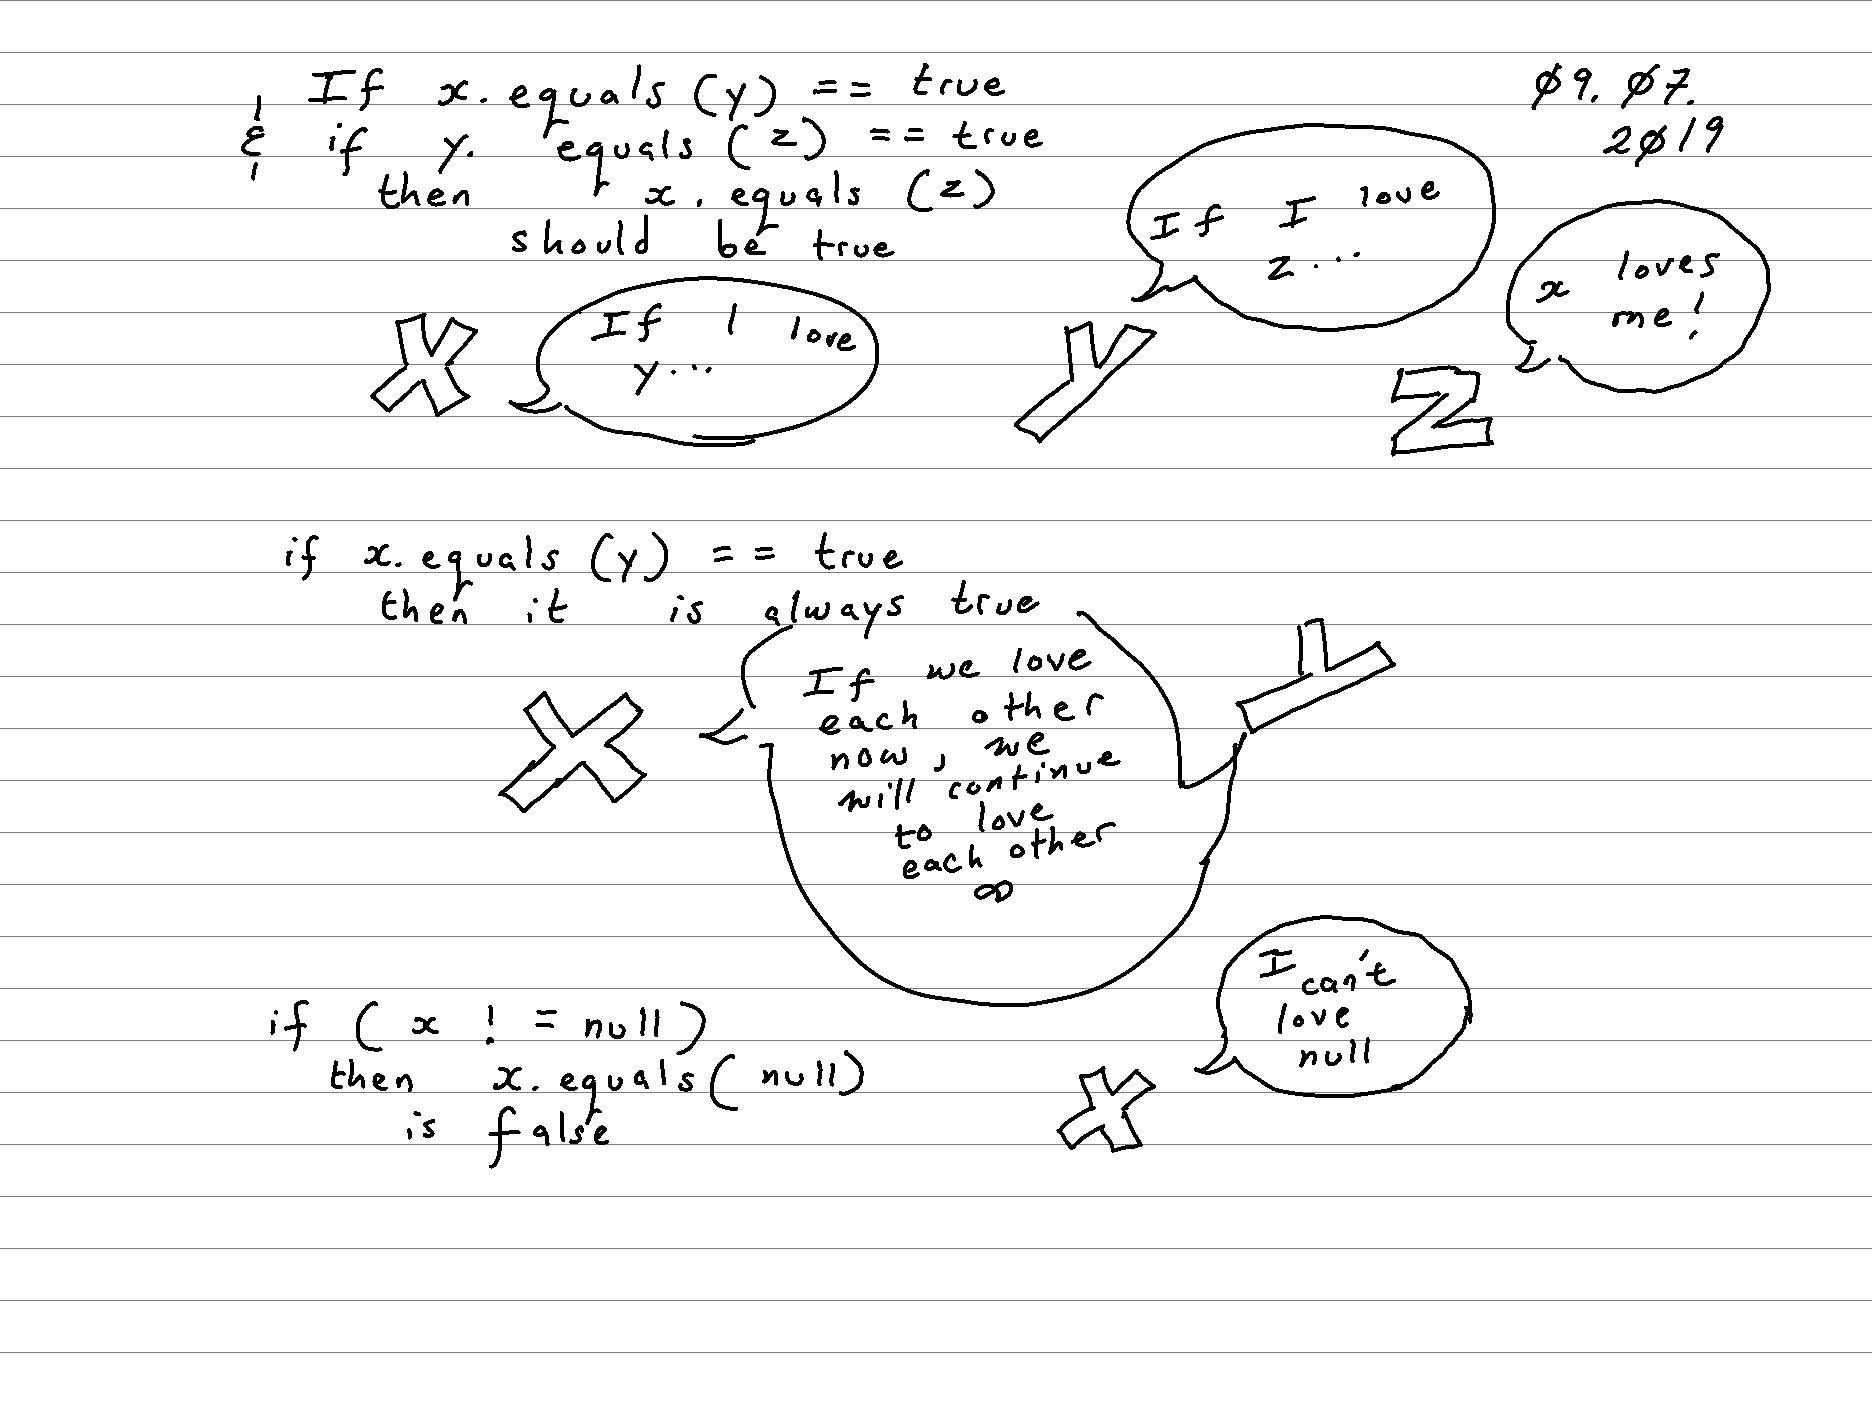 If x.equals(y) == true
& if y. equals(z) == true
then x.equals(z)
should be true
Ø9. Ø7.
2Ø19
X
If I love
y...
Y
If I love
z...
Z
x loves
me!
if x.equals(y) == true
then it is always true
X
If we love
each other
now, we
will continue
to love
each other
∞
Y
if (x != null)
then x.equals(null)
is false
X
I can't
love
null